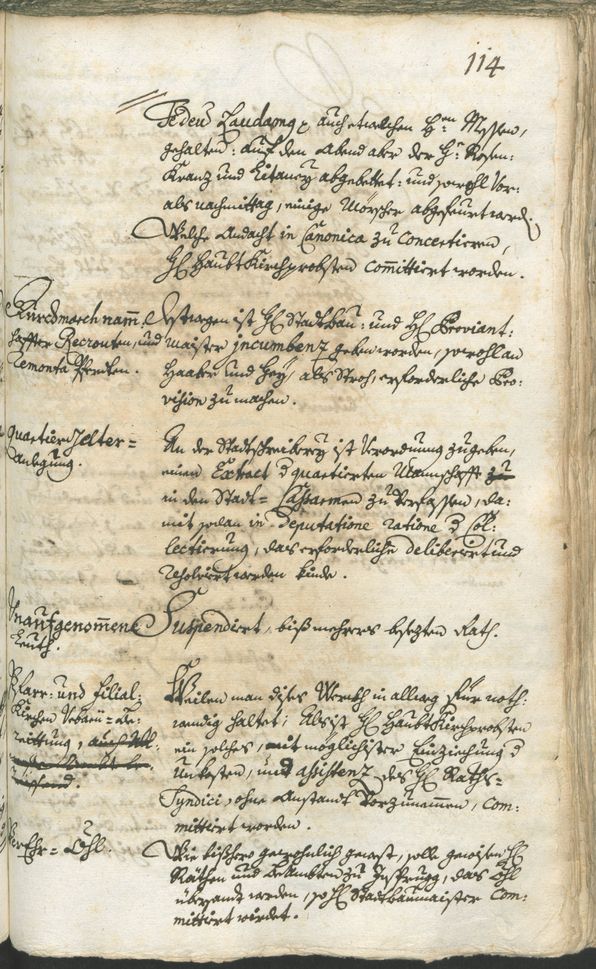 114
Te deum Laudamus auch etwelchen H:en Messen,
gehalten: auf den Abend aber der H: Rosen:
Kranz und Litaney abgebettet: und sowohl Vor:
als nachmittag, einige Mörscher abgefeurt werden.
Welche Andacht in Canonica zu Concertieren,
H: Haubt Kirchprobsten committiert worden.
Durchmarch namhaffter Recrouten, und
Remonta Pferten.
Destwegen ist H: Stadtbau: und H: Proviant:
maister jncumbenz geben worden, sowohl an
Haaber und Hey, als Stroh, erforderliche Pro:
vision zu machen.
Quartier Gelter=
Anlegung.
An der Stadtschreiberey ist Verordnung zugeben,
einen Extract d quartierten Mannschafft zu
in den Stadt= Casarmen zu Verfassen, da:
mit sodan in deputatione ratione d Col:
lectierung, das erforderliche deliberiert und
resolviert werden künde.
Unaufgenommene
Leuth.
Suspendiert, biß mehrers besezten Rath.
Pfarr: und Filial:
Kirchen Urbary = Be:
reittung,
Weilen man dises Werckh in allweg für noth:
wendig haltet; Als ist H: Haubt Kirchprobsten
ein solches, mit möglichister Einziehung d
Unkosten, und assistenz des H: Raths=
Syndici, ohne Anstandt Vorzunemmen, Com:
mittiert worden.
Ver Ehr= Öhl.
Wie bißhero gewohnlich gewest, solle gewisen H:
Räthen und Beambten zu Jnsprugg, das Öhl
übersandt werden, so H: Stadtbaumaister Com:
mittiert wirdet.